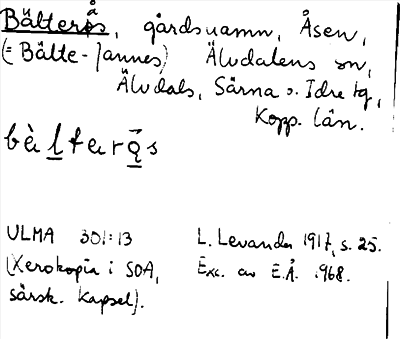 Bälterås, gårdsnamn, Åsen,
(= Bälte-Jannes) Älvdalens sn,
Älvdals, Särna o. Idre tg,
Kopp. län.
ULMA 301:13
(Xerokopia i SOA,
särsk. kapsel).
L. Levander 1917, s. 25.
Exc. av E.Å. 1968.